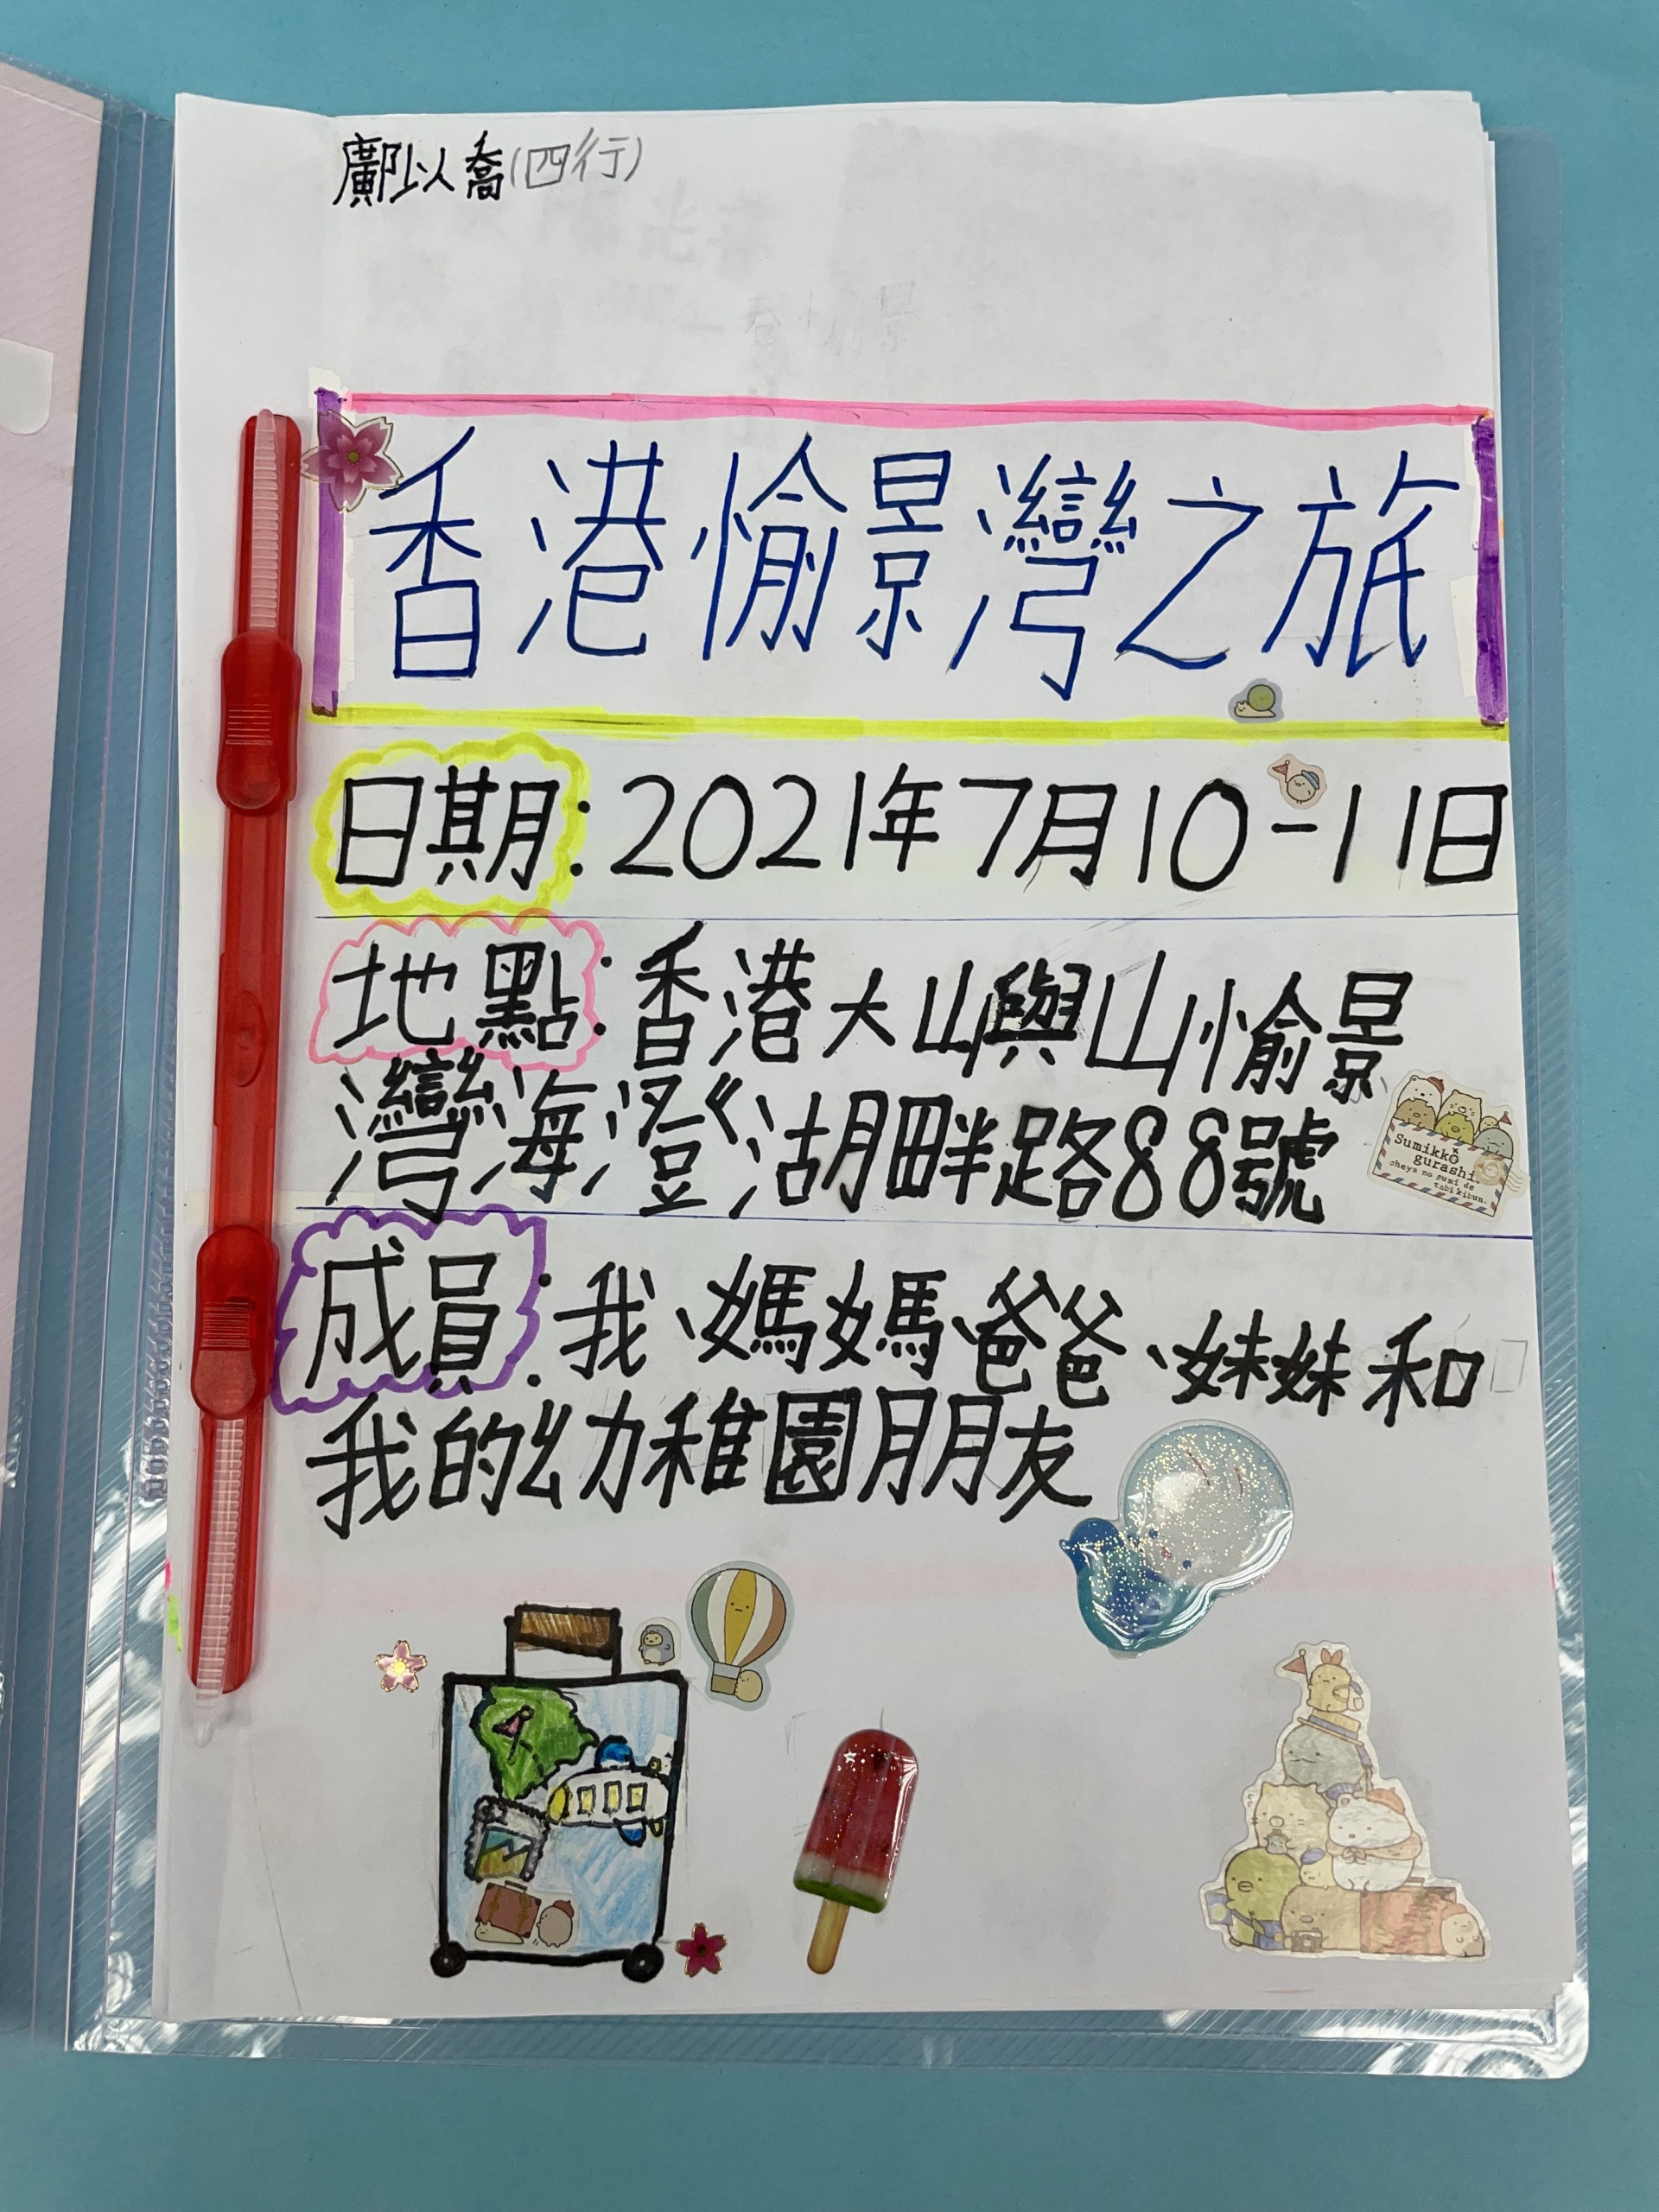 鄺以喬(四行)
香港愉景灣之旅
日期:2021年7月10-11日
地點:香港大嶼山愉景
灣海澄湖畔路88號
Sumikko
gurashi.
oheya no sumi de
tabi kibun.
成員:我、媽媽、爸爸、妹妹和
我的幼稚園朋友